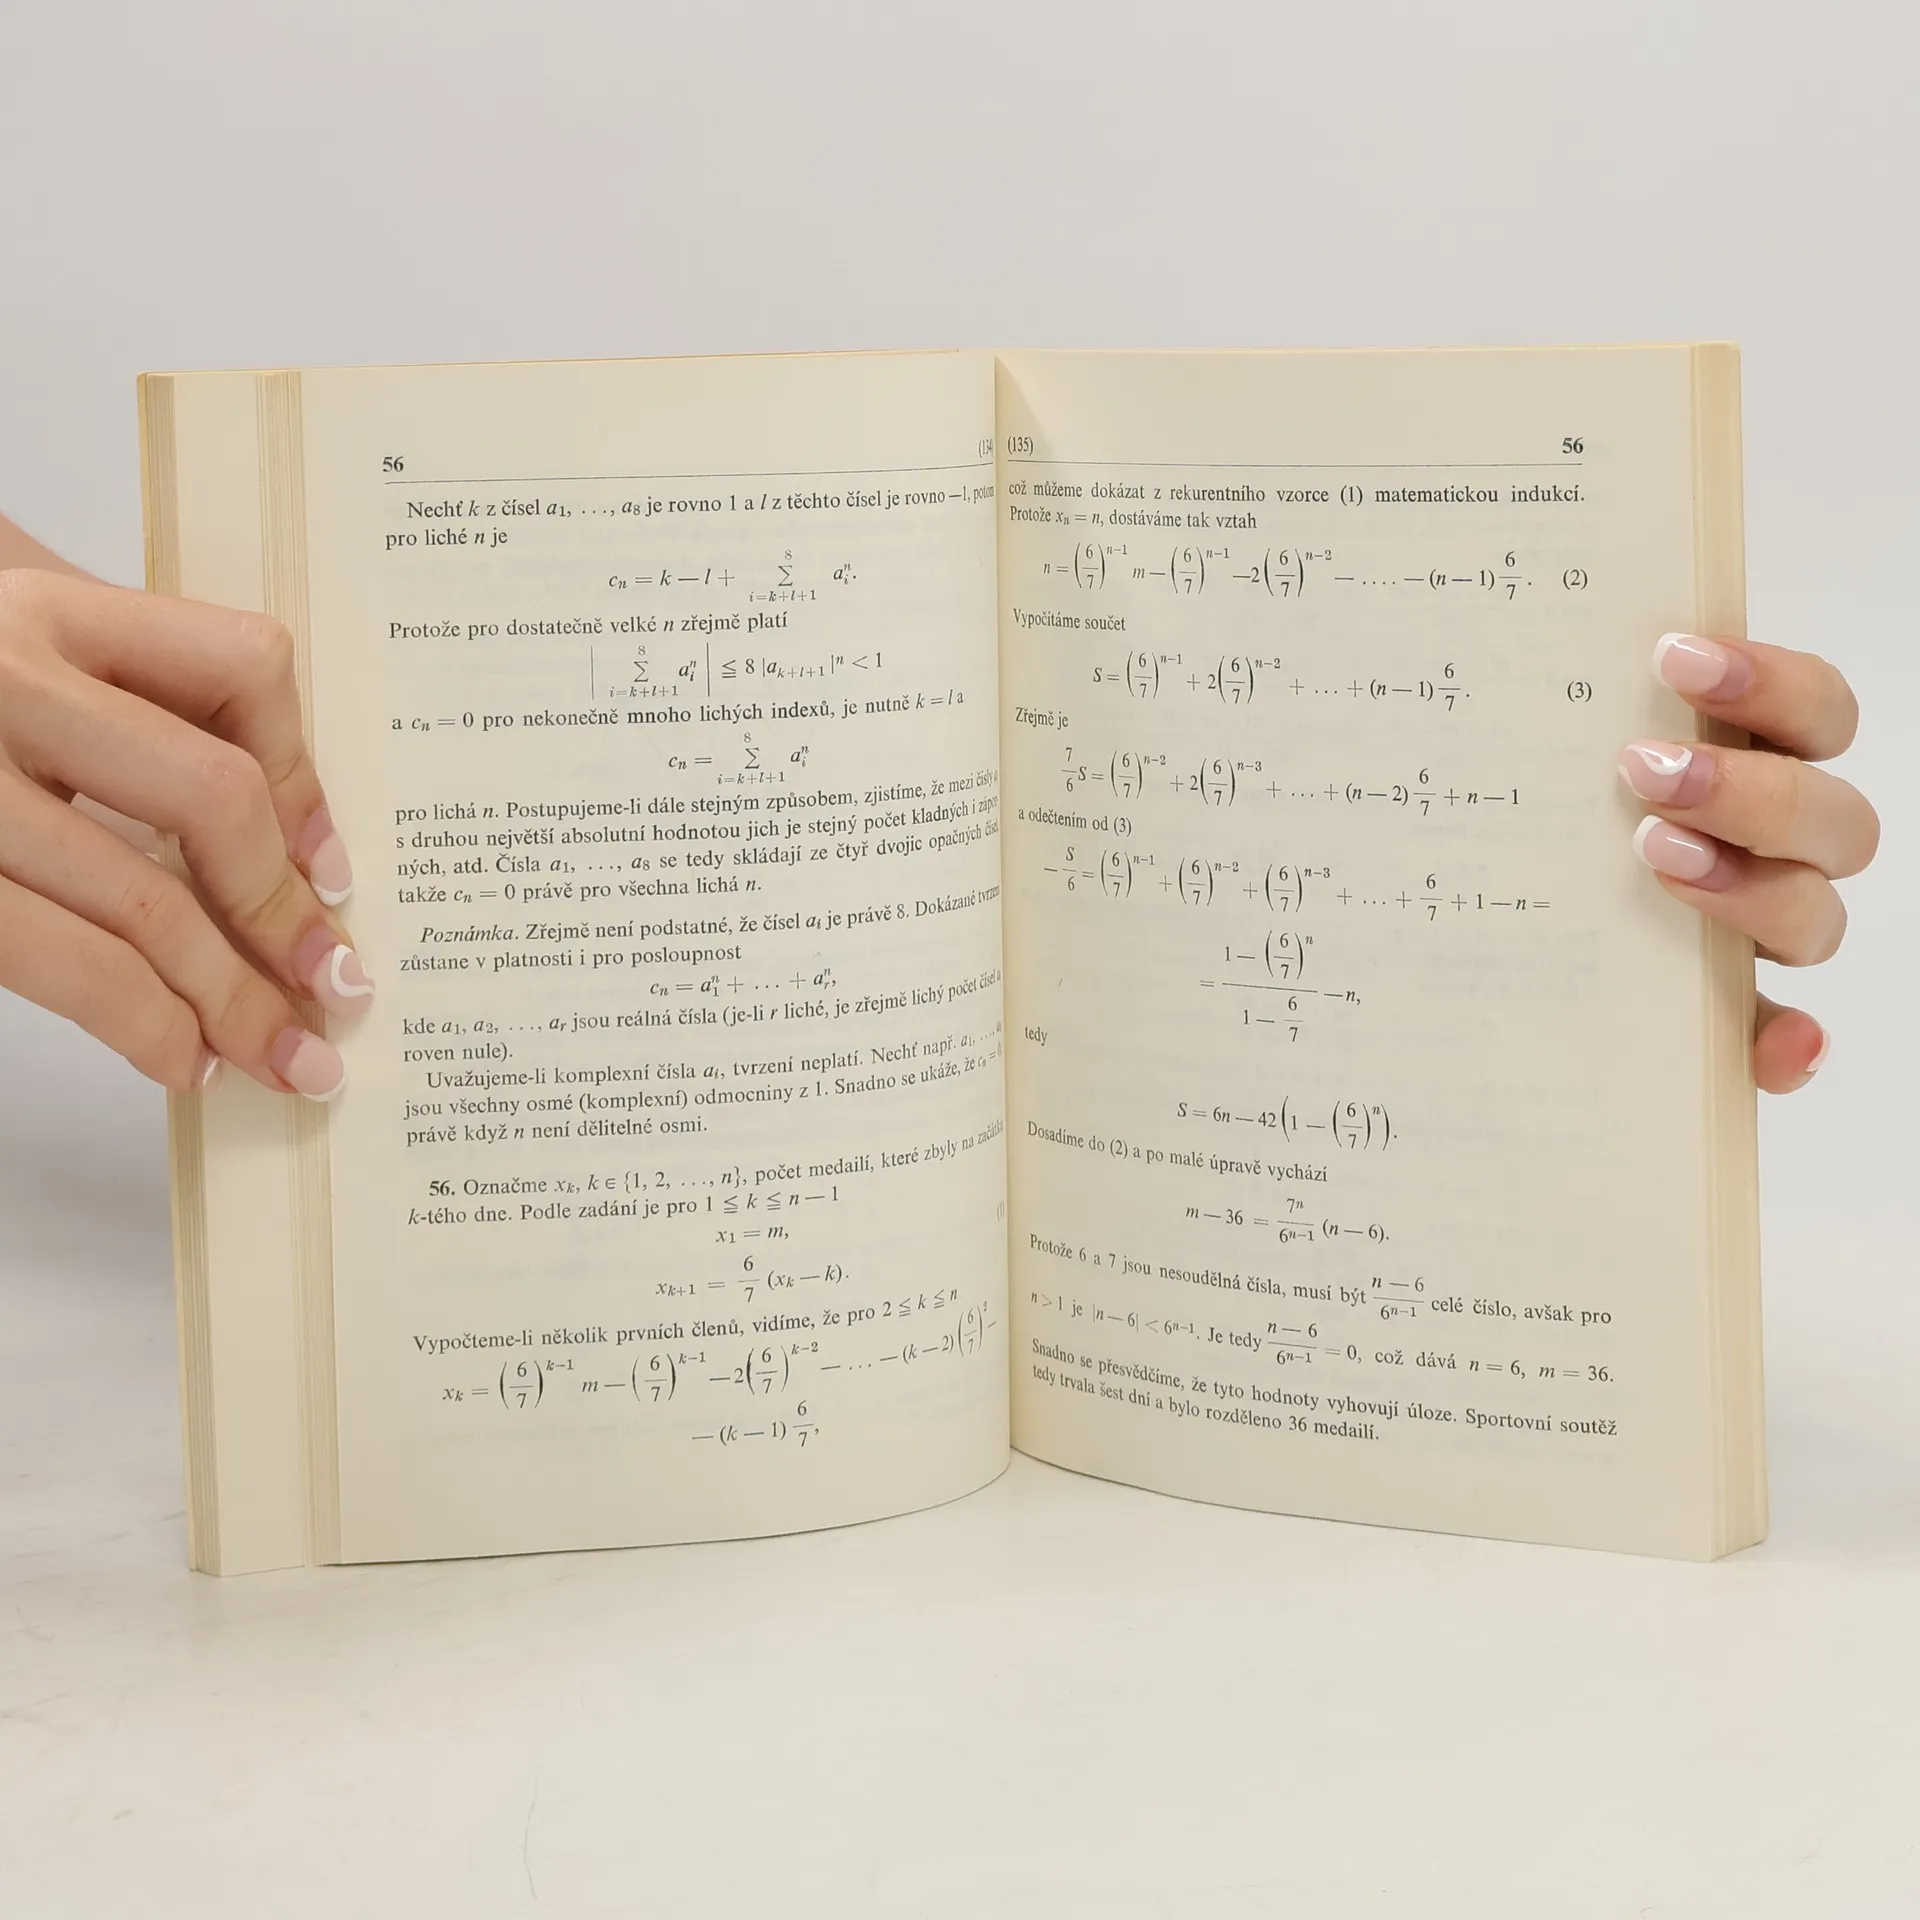 56 (134
Nechť k z čísel a₁, ..., a₈ je rovno 1 a l z těchto čísel je rovno —1, potom
pro liché n je
cₙ = k — l + ∑_{i=k+l+1}^{8} aᵢⁿ.
Protože pro dostatečně velké n zřejmě platí
| ∑_{i=k+l+1}^{8} aᵢⁿ | ≦ 8 |a_{k+l+1}|ⁿ < 1
a cₙ = 0 pro nekonečně mnoho lichých indexů, je nutně k = l a
cₙ = ∑_{i=k+l+1}^{8} aᵢⁿ
pro lichá n. Postupujeme-li dále stejným způsobem, zjistíme, že mezi čísly a
s druhou největší absolutní hodnotou jich je stejný počet kladných i zápor-
ných, atd. Čísla a₁, ..., a₈ se tedy skládají ze čtyř dvojic opačných čísel,
takže cₙ = 0 právě pro všechna lichá n.
Poznámka. Zřejmě není podstatné, že čísel aᵢ je právě 8. Dokázané tvrzení
zůstane v platnosti i pro posloupnost
cₙ = a₁ⁿ + ... + aᵣⁿ,
kde a₁, a₂, ..., aᵣ jsou reálná čísla (je-li r liché, je zřejmě lichý počet čísel a
roven nule).
Uvažujeme-li komplexní čísla aᵢ, tvrzení neplatí. Nechť např. a₁, ...,
jsou všechny osmé (komplexní) odmocniny z 1. Snadno se ukáže, že cₙ = 0,
právě když n není dělitelné osmi.
56. Označme xₖ, k ∈ {1, 2, ..., n}, počet medailí, které zbyly na začátku
k-tého dne. Podle zadání je pro 1 ≦ k ≦ n — 1
x₁ = m, (1)
xₖ₊₁ = 6/7 (xₖ — k).
Vypočteme-li několik prvních členů, vidíme, že pro 2 ≦ k ≦ n
xₖ = (6/7)^{k—1} m — (6/7)^{k—1} —2(6/7)^{k—2} — ... — (k — 2) (6/7)² —
— (k — 1) 6/7,
(135) 56
což můžeme dokázat z rekurentního vzorce (1) matematickou indukcí.
Protože xₙ = n, dostáváme tak vztah
n = (6/7)^{n—1} m — (6/7)^{n—1} —2(6/7)^{n—2} — .... — (n — 1) 6/7. (2)
Vypočítáme součet
S = (6/7)^{n—1} + 2(6/7)^{n—2} + ... + (n — 1) 6/7. (3)
Zřejmě je
7/6 S = (6/7)^{n—2} + 2(6/7)^{n—3} + ... + (n — 2) 6/7 + n — 1
a odečtením od (3)
— S/6 = (6/7)^{n—1} + (6/7)^{n—2} + (6/7)^{n—3} + ... + 6/7 + 1 — n =
= (1 — (6/7)ⁿ)/(1 — 6/7) — n,
tedy
S = 6n — 42 (1 — (6/7)ⁿ).
Dosadíme do (2) a po malé úpravě vychází
m — 36 = 7ⁿ/6ⁿ⁻¹ (n — 6).
Protože 6 a 7 jsou nesoudělná čísla, musí být (n — 6)/6ⁿ⁻¹ celé číslo, avšak pro
n > 1 je |n — 6| < 6ⁿ⁻¹. Je tedy (n — 6)/6ⁿ⁻¹ = 0, což dává n = 6, m = 36.
Snadno se přesvědčíme, že tyto hodnoty vyhovují úloze. Sportovní soutěž
tedy trvala šest dní a bylo rozděleno 36 medailí.